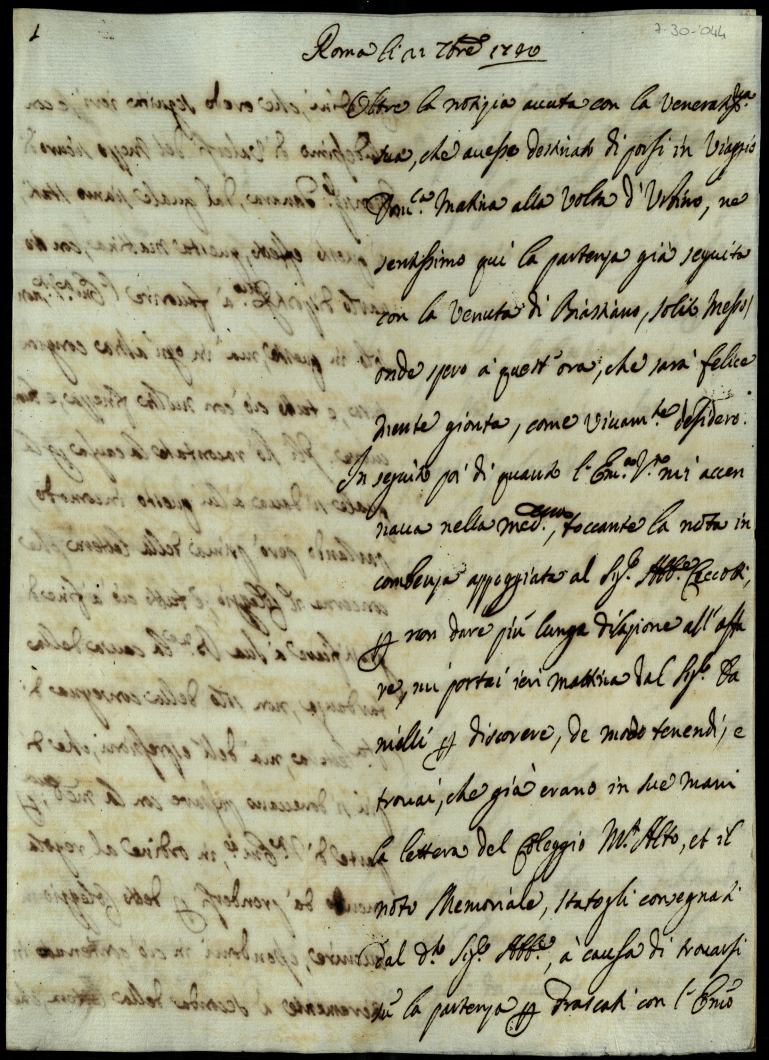 1
7-30-044
Roma li 21 7bre 1740
Oltre la notizia auuta con la Veneratissma
sua, che auesse destinato di porsi in Viaggio
Domca Matina alla Volta d'Vrbino, ne
sentissimo qui la partenza già seguita
con la Venuta di Bastiano, solito Messo,
onde spero à quest'ora, che sarà felice
mente gionta, come viuamte desidero.
In seguito poi di quanto l'Emza Vra mi accen
naua nella medma, toccante la nota in
combenza appoggiata al Sigr Abbe Ceccotti,
p non dare più lunga dilazione all'affa
re, mi portai ieri mattina dal Sigr Da
nielli p discorere, de modo tenendi, e
trouai, che già erano in sue mani
la lettera del Colleggio Mt'Alto, et il
noto Memoriale, statogli consegnati
dal do Sigr Abbe, à causa di trouarsi
sù la partenza p Frascati con l'Emo